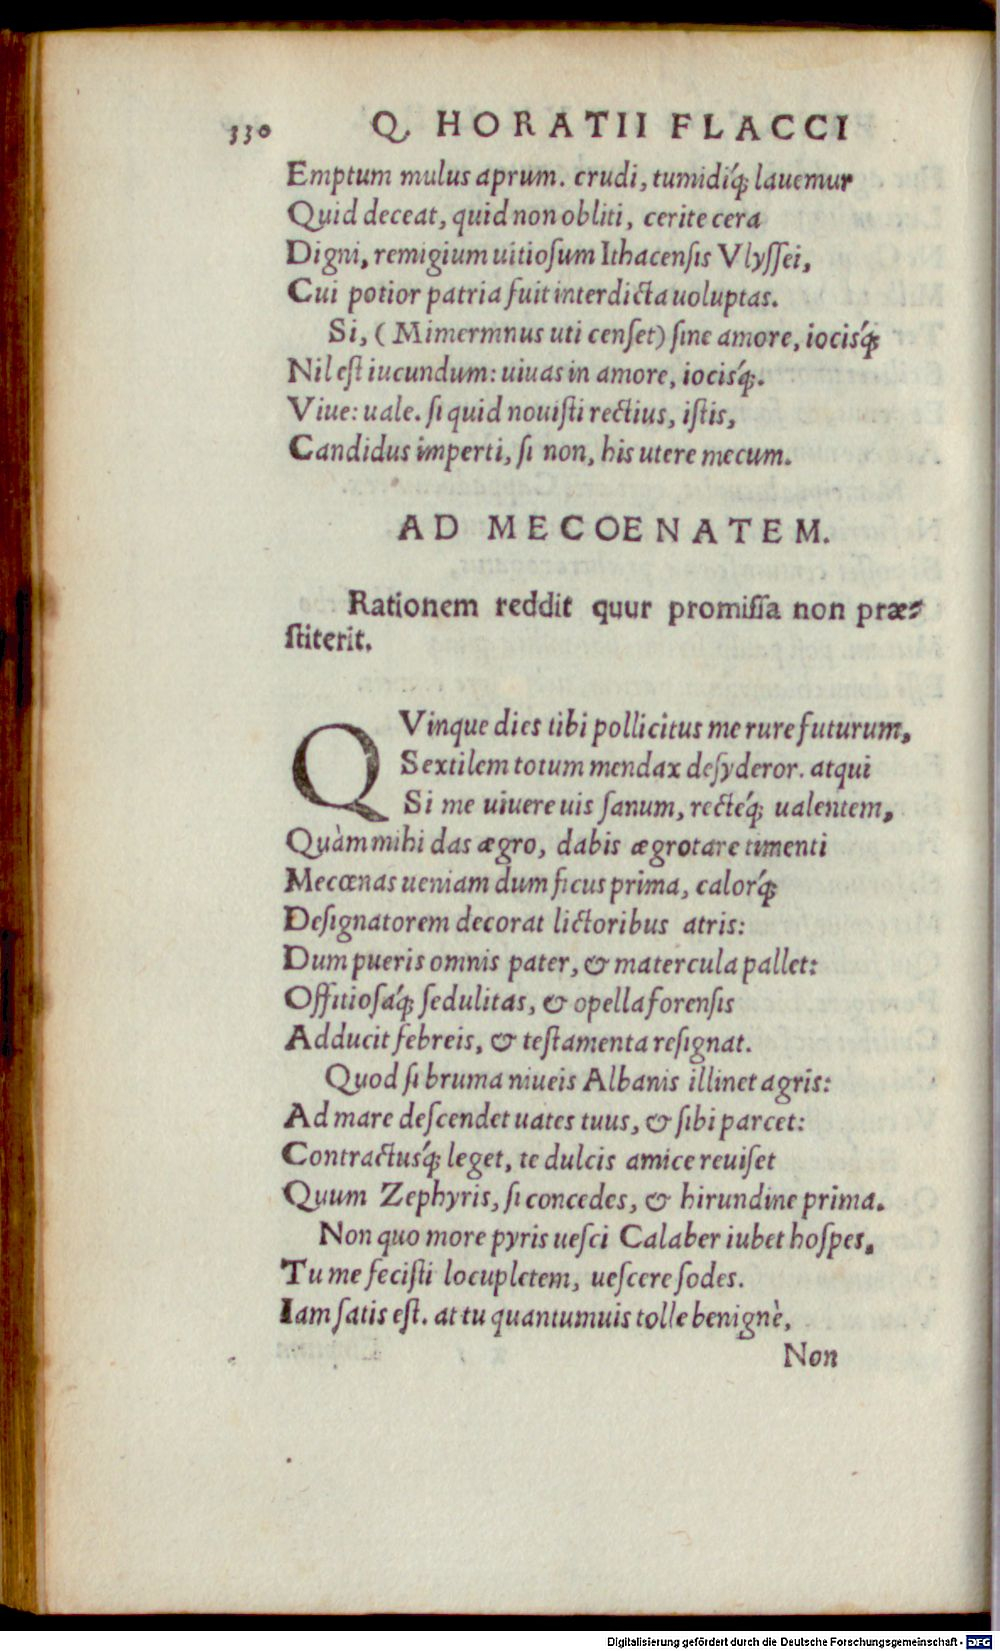 330 Q. HORATII FLACCI
Emptum mulus aprum. crudi, tumidíq; lauemur
Quid deceat, quid non obliti, cerite cera
Digni, remigium uitioſum Ithacenſis Vlyſſei,
Cui potior patria fuit interdicta uoluptas.
Si, (Mimermnus uti cenſet) ſine amore, iocisq́;
Nil eſt iucundum: uiuas in amore, iocisq́;.
Viue: uale. ſi quid nouiſti rectius, iſtis,
Candidus imperti, ſi non, his utere mecum.
AD MECOENATEM.
Rationem reddit quur promiſſa non præ-
ſtiterit.
QVinque dies tibi pollicitus me rure futurum,
Sextilem totum mendax deſyderor. atqui
Si me uiuere uis ſanum, recteq́; ualentem,
Quàm mihi das ægro, dabis ægrotare timenti
Mecœnas ueniam dum ficus prima, calorq́;
Deſignatorem decorat lictoribus atris:
Dum pueris omnis pater, & matercula pallet:
Offitioſaq́; ſedulitas, & opella forenſis
Adducit febreis, & teſtamenta reſignat.
Quod ſi bruma niueis Albanis illinet agris:
Ad mare deſcendet uates tuus, & ſibi parcet:
Contractusq́; leget, te dulcis amice reuiſet
Quum Zephyris, ſi concedes, & hirundine prima.
Non quo more pyris ueſci Calaber iubet hoſpes,
Tu me feciſti locupletem, ueſcere ſodes.
Iam ſatis eſt. at tu quantumuis tolle benignè,
Non
Digitalisierung gefördert durch die Deutsche Forschungsgemeinschaft - DFG